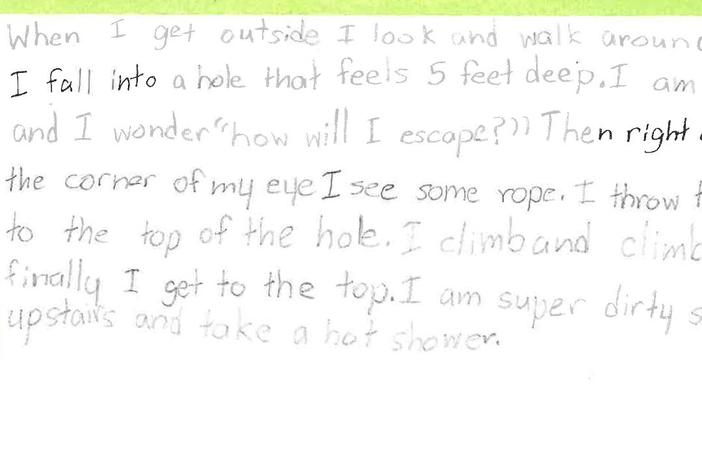 When I get outside I look and walk aroun
I fall into a hole that feels 5 feet deep. I am
and I wonder "how will I escape?" Then right
the corner of my eye I see some rope. I throw t
to the top of the hole. I climb and climb
finally I get to the top. I am super dirty s
upstairs and take a hot shower.